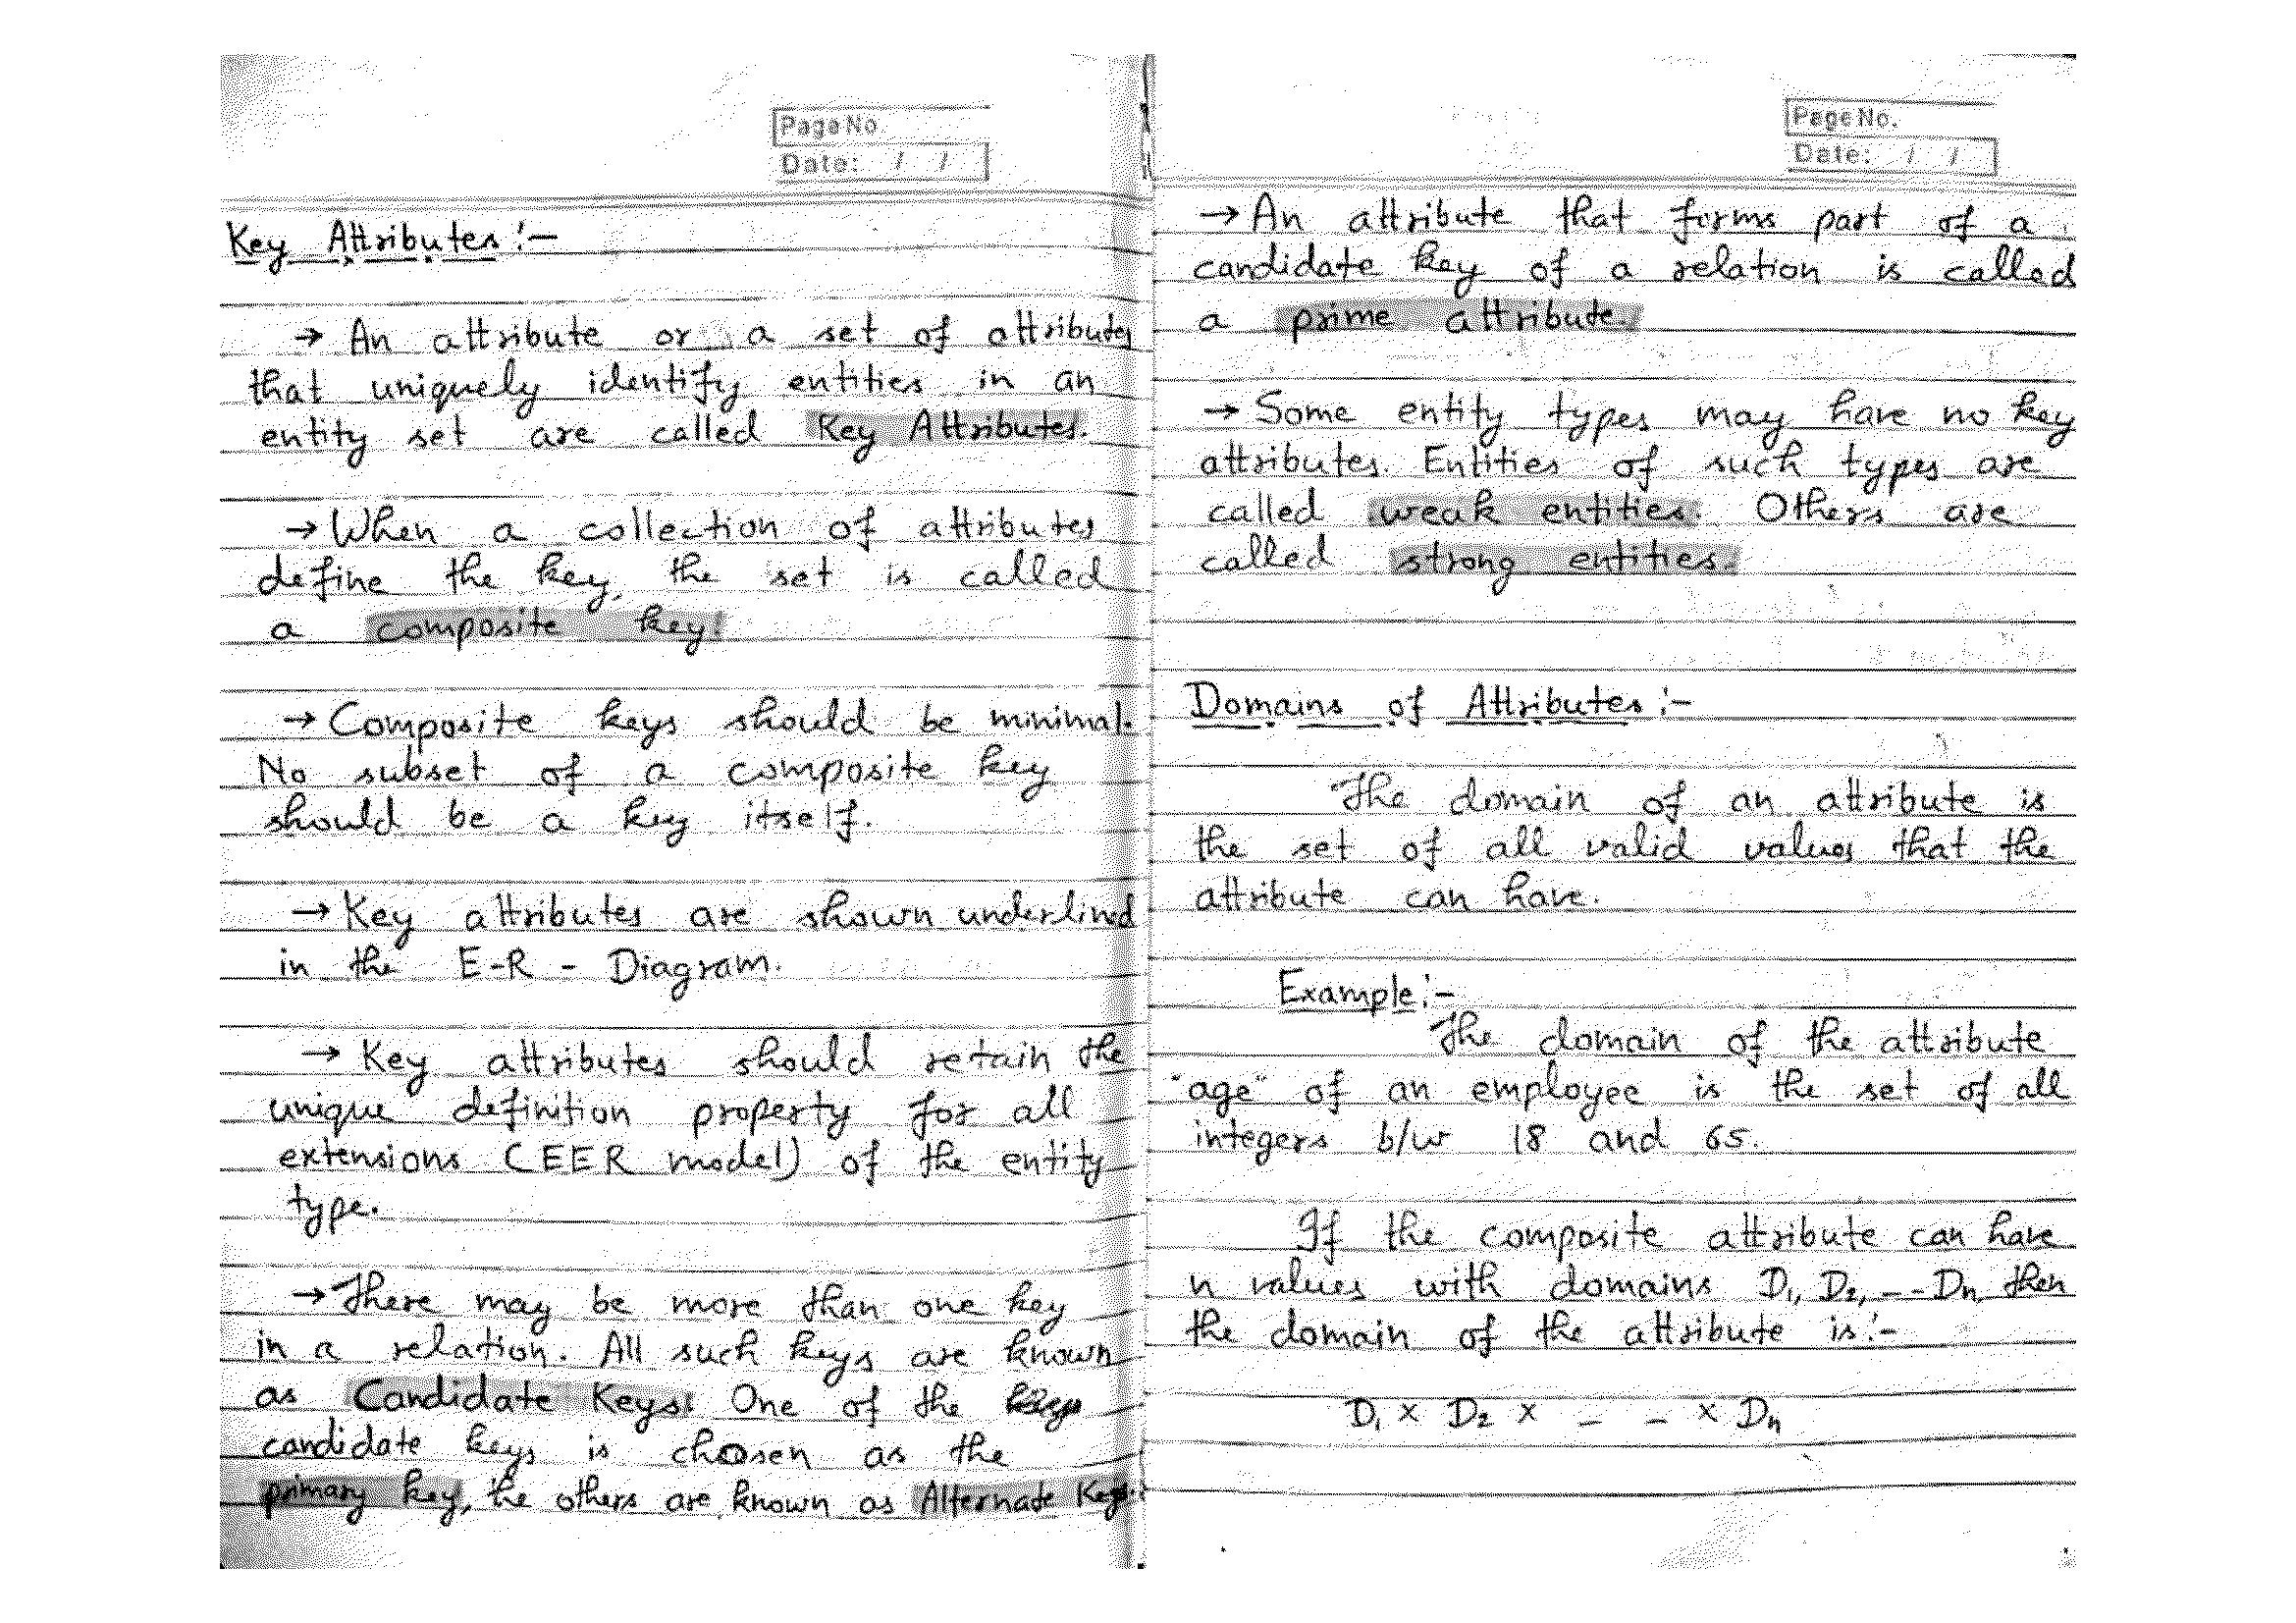 Page No.
Date: / /
Key Attributes :-
→ An attribute or a set of attributes
that uniquely identify entities in an
entity set are called Key Attributes.
→ When a collection of attributes
define the key, the set is called
a composite key.
→ Composite keys should be minimal.
No subset of a composite key
should be a key itself.
→ Key attributes are shown underlined
in the E-R - Diagram.
→ Key attributes should retain the
unique definition property for all
extensions (EER model) of the entity
type.
→ There may be more than one key
in a relation. All such keys are known
as Candidate Keys. One of the
candidate keys is chosen as the
primary key, the others are known as Alternate Keys.
Page No.
Date: / /
→ An attribute that forms part of a
candidate key of a relation is called
a prime attribute.
→ Some entity types may have no key
attributes. Entities of such types are
called weak entities. Others are
called strong entities.
Domains of Attributes :-
The domain of an attribute is
the set of all valid values that the
attribute can have.
Example :-
The domain of the attribute
"age" of an employee is the set of all
integers b/w 18 and 65.
If the composite attribute can have
n values with domains D₁, D₂, -- Dn, then
the domain of the attribute is :-
D₁ × D₂ × _ _ × Dn